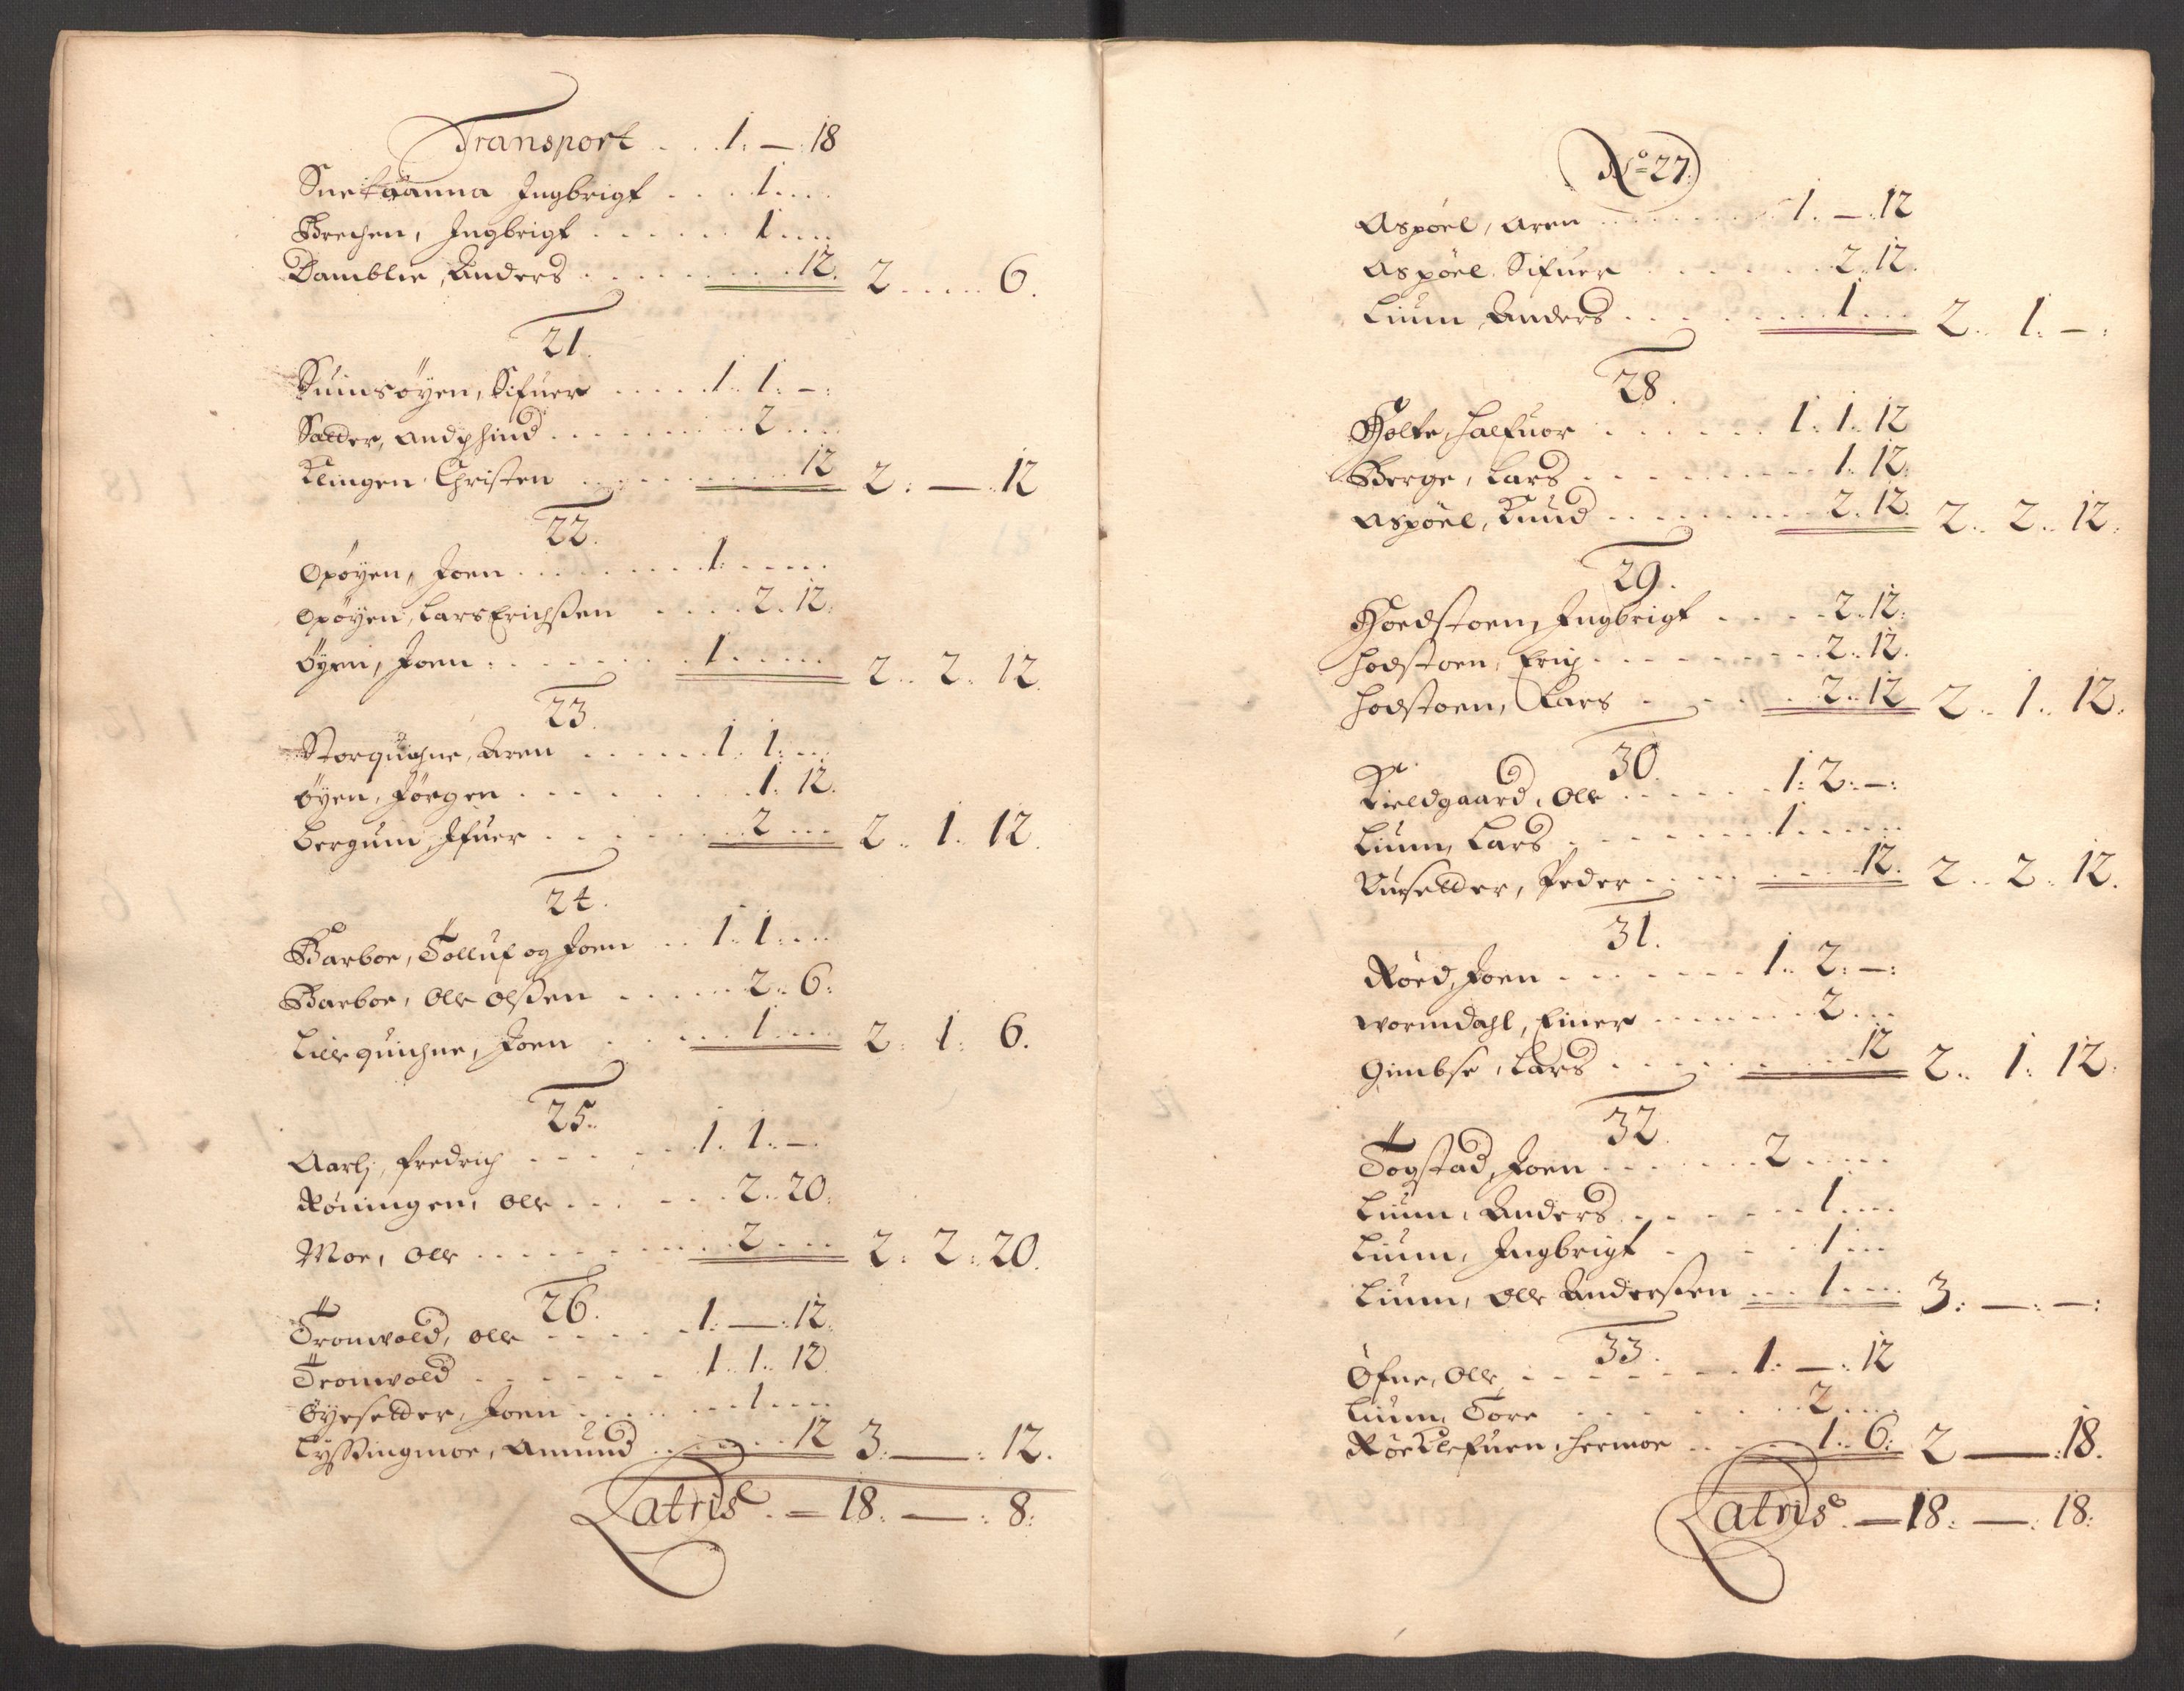 Transport . . . 1. — . 18
Sneldanna Ingbrigt . . . . 1. . . .
Brechen, Ingbrigt . . . . . . 1 . . . .
Damblie, Anders . . . . . . . . 12. 2 . . . . . 6.
21.
Suinsøyen, Sifuer . . . . . 1. 1. — :
Sætter, Andphind . . . . . . . 2 . . . .
Klingen Christen . . . . . . . 12 2 : — . 12
22.
Opøyen, Joen . . . . . . . 1. . . . . .
Opøyen, Lars Erichssen . . . . 2. 12.
Øyen, Joen . . . . . . . 1. . . . . 2 . . 2. 12.
23.
Storquhne, Aren . . . . . . 1. 1. . . .
Øyen, Jørgen . . . . . . . 1. 12.
Bergum, Ifuer . . . . . . . 2 . . . 2 . . 1. 12.
24.
Barboe, Tolluf og Joen . . 1. 1. . . .
Barboe, Ole Olssen . . . . . 2. 6.
Lillequichne, Joen . . . . . 1. . . . 2. 1. 6.
25.
Aarli, Fredrich . . . . . 1. 1. —
Røningen, Ole . . . . . . 2. . 20.
Moe, Ole . . . . . . . . . 2 . . . . 2. 2. 20.
26.
Tronwold, Ole . . . . . 1. — . 12.
Tronwold . . . . . . . 1. 1. 12
Øyesetter, Joen . . . . . . . 1. . . .
Lyssingmoe, Amund . . . . . 12 3. — : 12.
Latris . — 18. — . 8.
No. 27.
Aspøel, Aren . . . . . . . . 1. — . 12
Aspøel Sifuer . . . . . . 2. 12.
Lium, Anders . . . . . . . 1. . . . 2. . 1. — :
28.
Holte, Halfuor . . . . . . 1. 1. 12
Berge, Lars . . . . . . . 1. 12.
Aspøel, Knud . . . . . . . 2. 12. 2. . 2. . 12.
29.
Hoedstoen, Ingbrigt . . . . 2. 12.
Hodstoen, Erich . . . . . . . 2. . 12.
Hodstoen, Lars . . . . . 2. . 12 2. . 1. . 12.
30.
Kieldgaard, Ole . . . . . . 1. 2. — :
Lium, Lars . . . . . . . 1. . . . . .
Buesetter, Peder . . . . . . . . 12. 2. . 2. 12.
31.
Røed, Joen . . . . . . . 1. . 2. — :
Wormdahl, Einer . . . . . . . 2 . . .
Gimbse, Lars . . . . . . . 12 2. . 1. 12.
32.
Togstad, Joen . . . . . . . 2 . . . . .
Lium, Anders . . . . . . . 1. . . .
Lium, Ingbrigt . . . . . 1. . .
Lium, Ole Anderssen . . . 1. . . . 3. — : — :
33.
Øfne, Ole . . . . . . . . 1. — . 12
Lium, Tore . . . . . . . . 2 . . . .
Røeklefuen, Hermoe . . . . . 1. . 6. 2 — . 18.
Latris . — 18. — . 18.